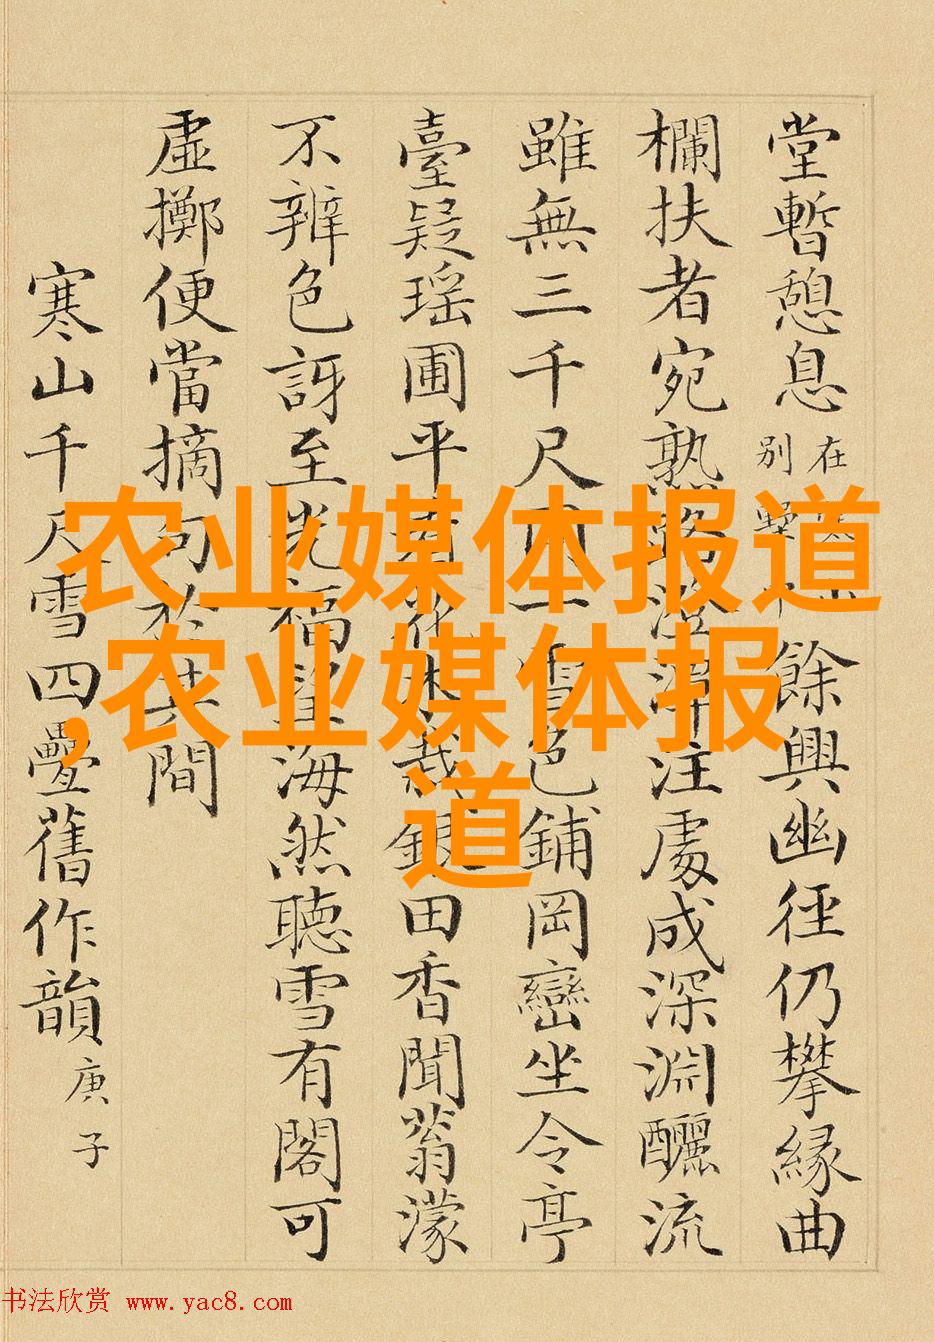 堂暫憩息在別墅餘興幽徑仍攀緣曲
欄扶者宛熟路澄潭注處成深淵釃流
雖無三千尺一雪色鋪岡巒坐令亭
臺疑瑤圃平花木栽銀田香聞蓊濛
不辨色訝至光福望海然聽雪有閣可
虛擲便當摘句於其間
寒山千尺雪四疊舊作韻庚子
农业媒体报道
,农业媒体报
道
书法欣赏 www.yac8.com